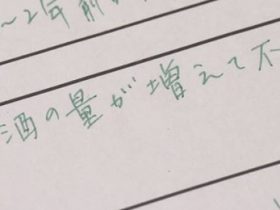 ～2年前
酒の量が増えて不